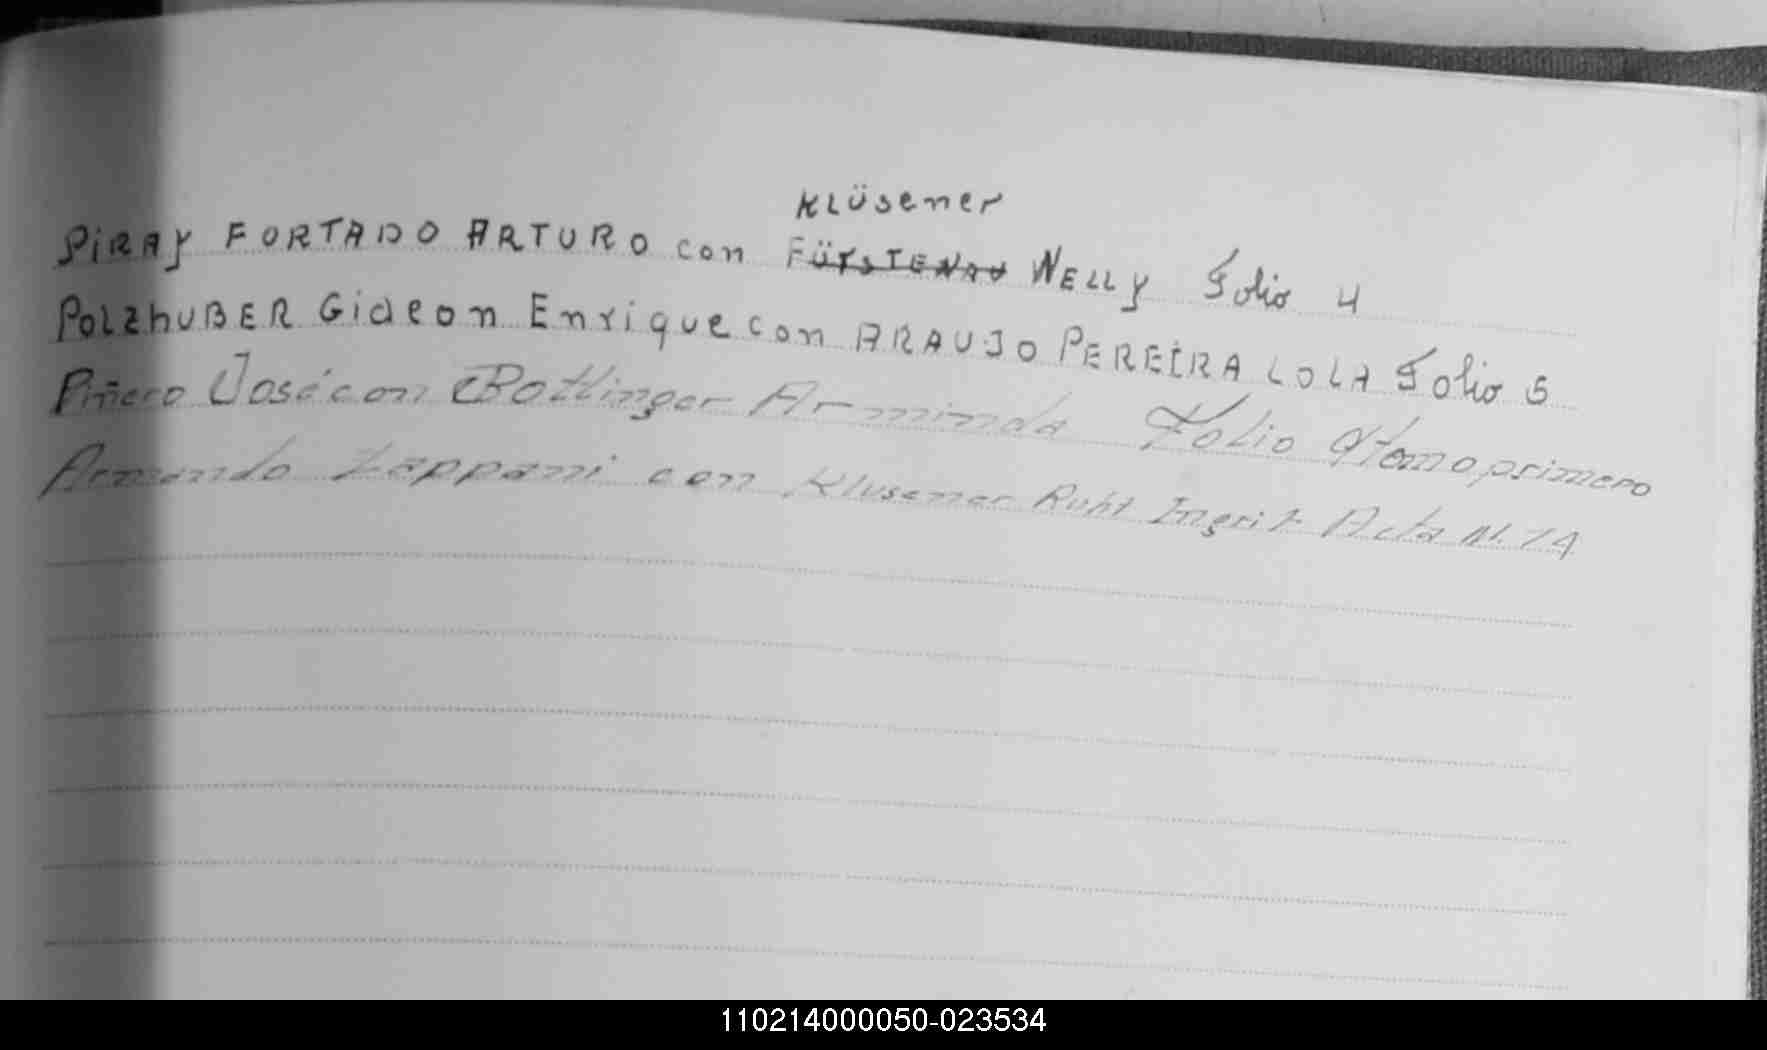 Klüsener
PiRAy FORTADO ARTURO con FÜrSTENAU NELLy Folio 4
PolzhuBER Gideon Enrique con ARAUJO PEREIRA LOLA Folio 5
Piñero José con Bottinger Arminda Folio 9 tomo primero
Armando Zappani con Klusener Ruht Ingrit Acta N. 14
110214000050-023534